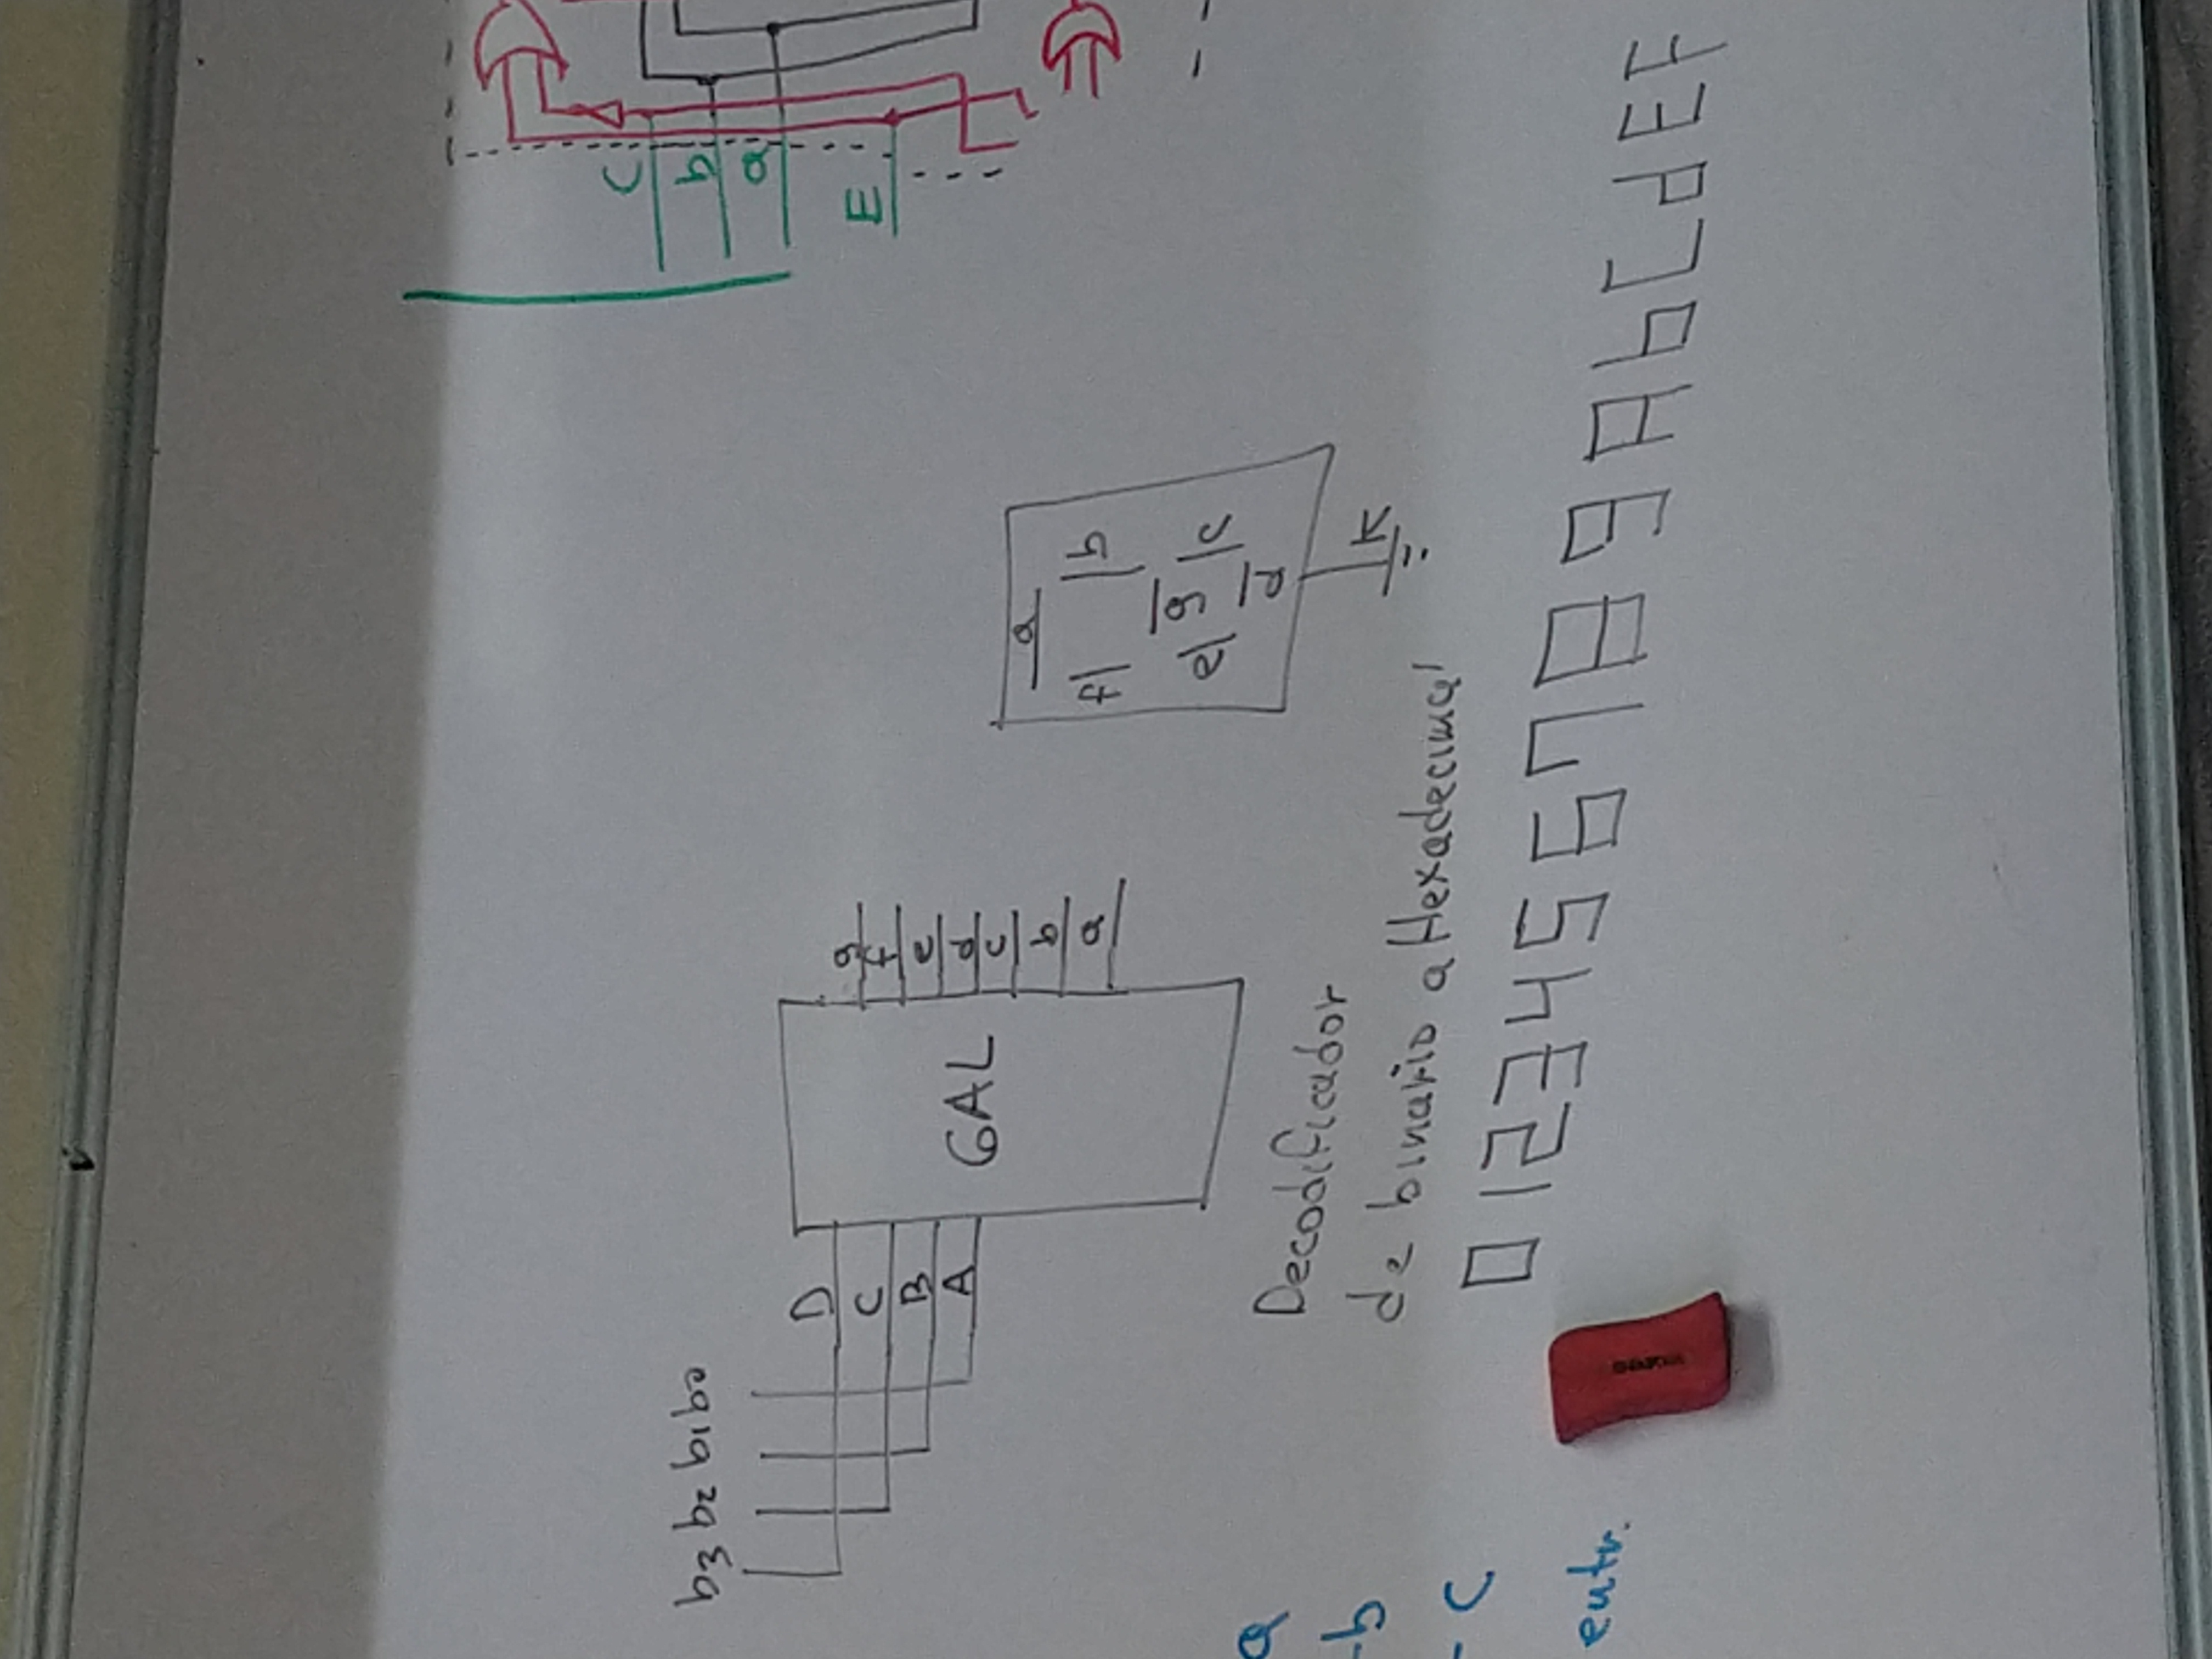 b3 b2 b1 b0
D
C
B
A
GAL
g
f
e
d
c
b
a
a
f b
g
e c
d
K
Decodificador
de binario a Hexadecimal
0 1 2 3 4 5 6 7 8 9 A b C d E F
a
-b
- C
entr.
C
b
a
E